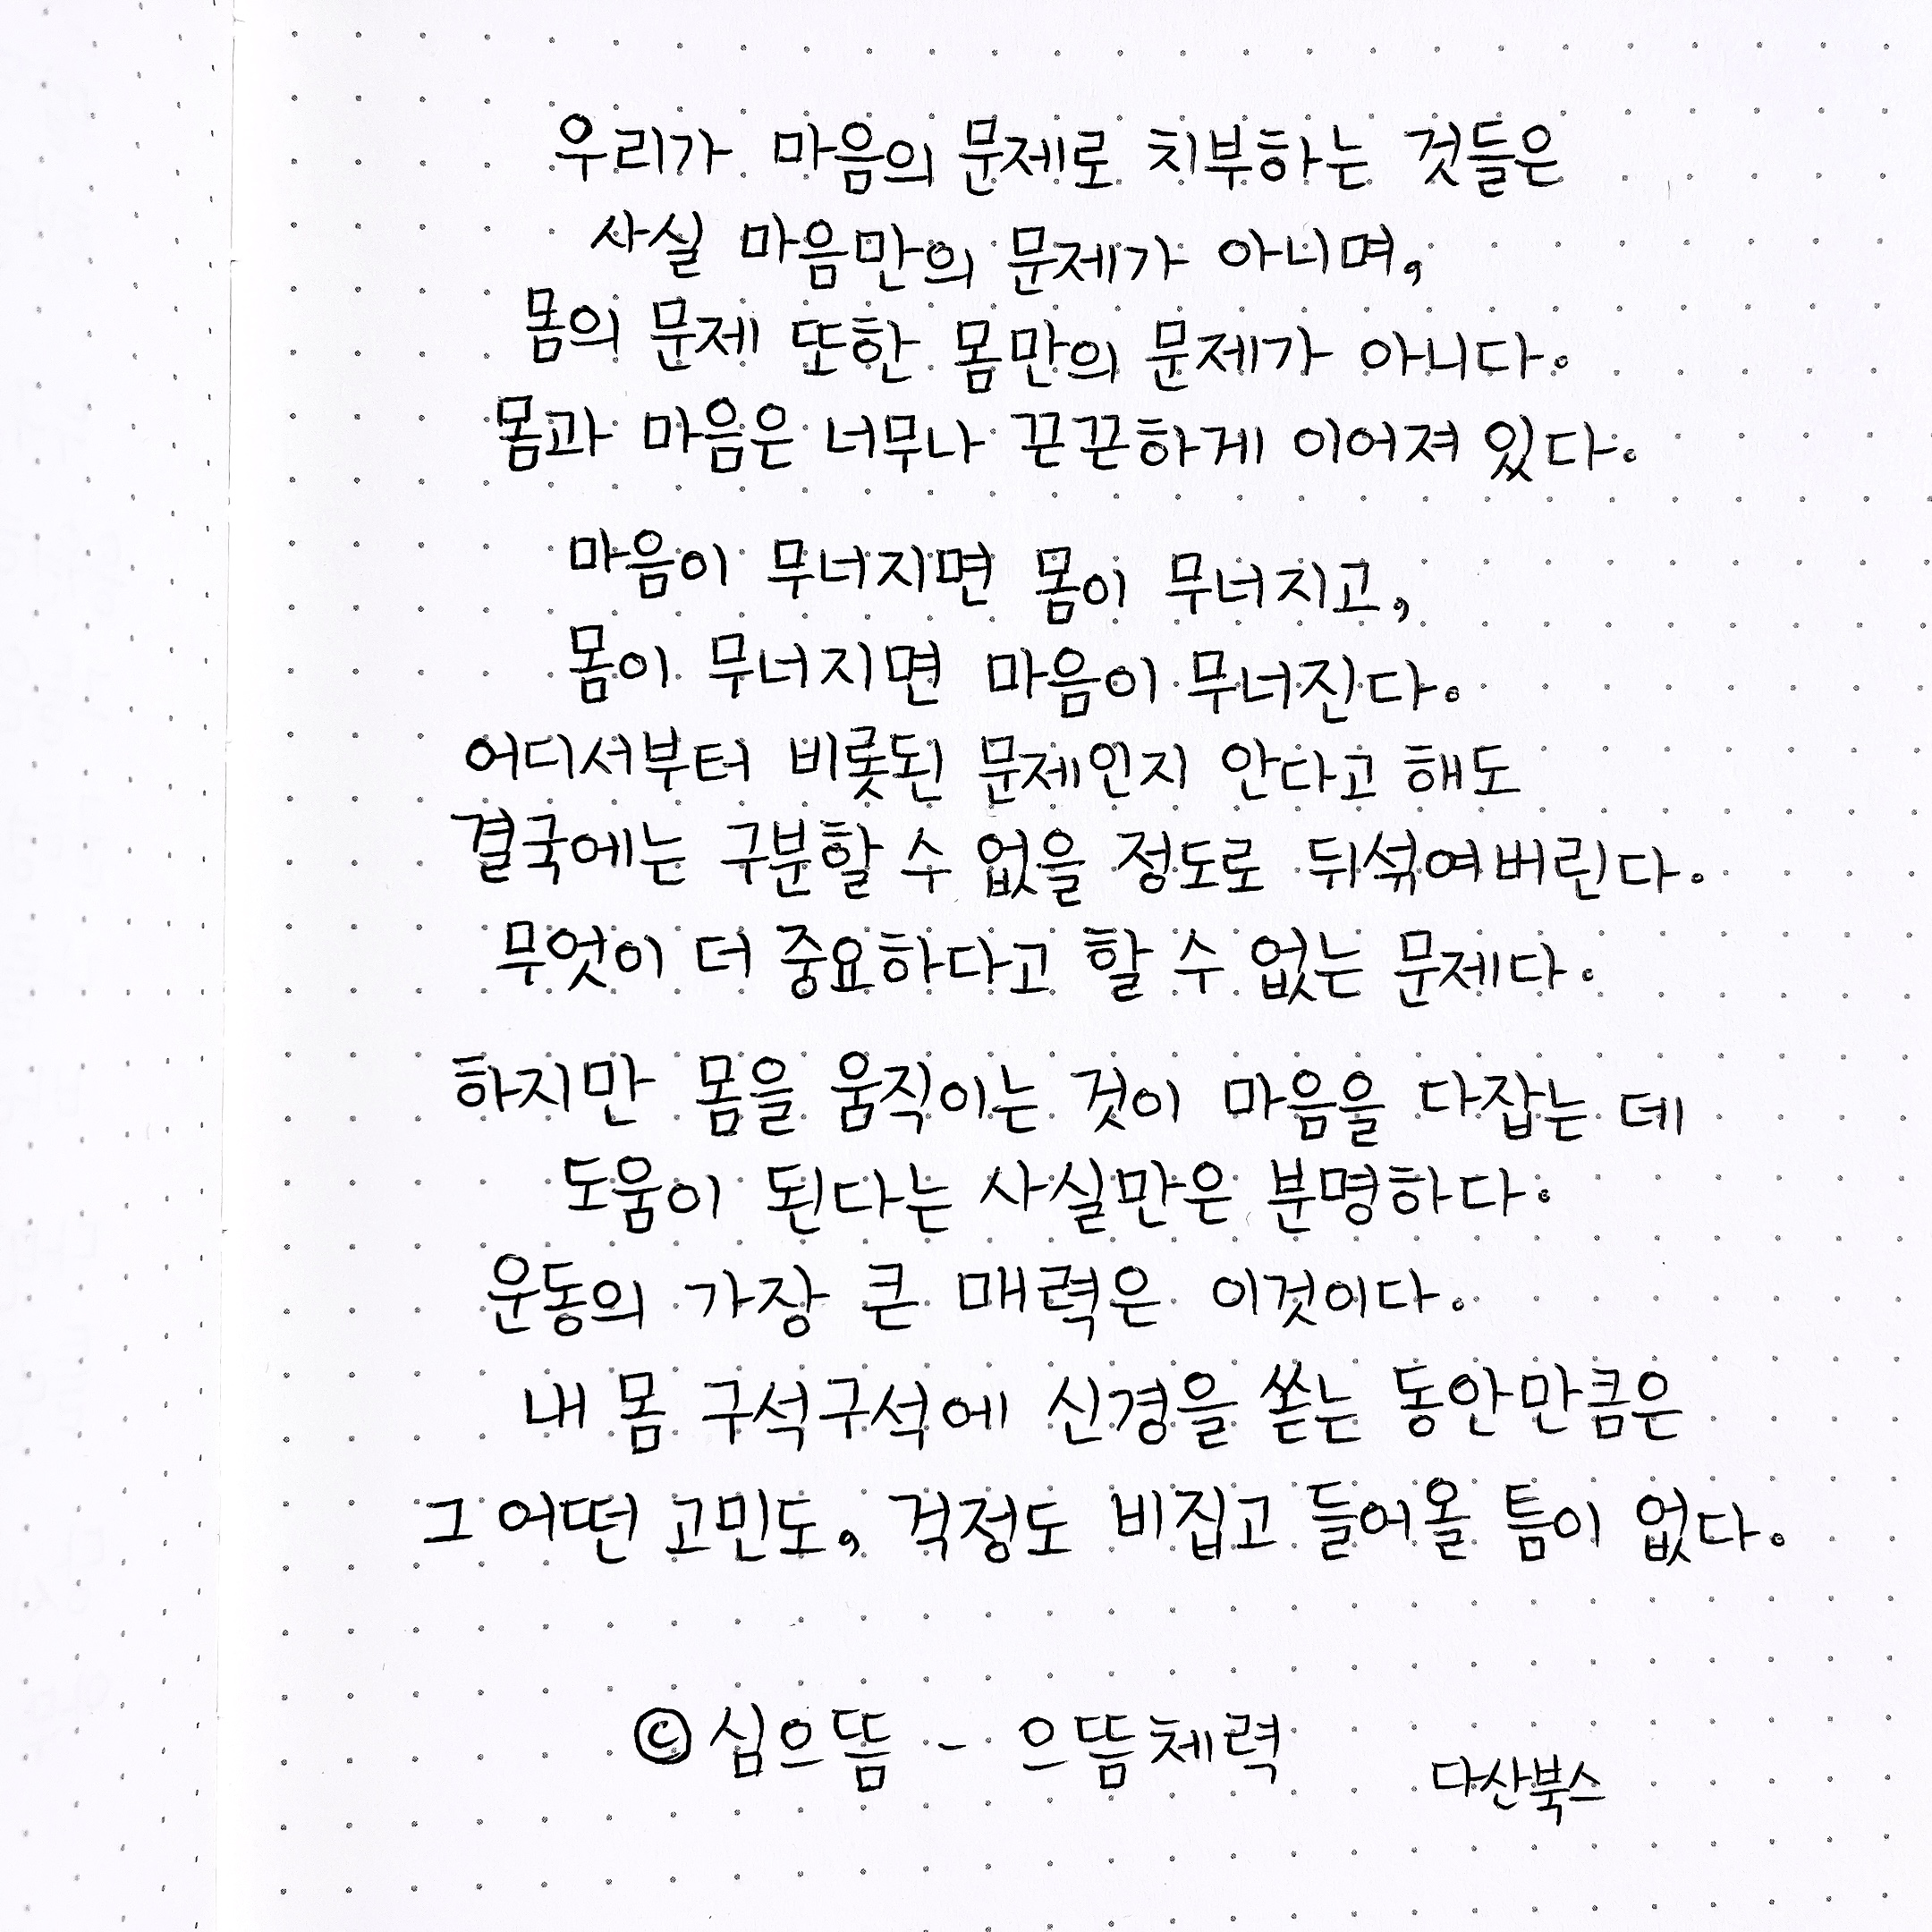 우리가 마음의 문제로 치부하는 것들은
사실 마음만의 문제가 아니며,
몸의 문제 또한 몸만의 문제가 아니다.
몸과 마음은 너무나 끈끈하게 이어져 있다.
마음이 무너지면 몸이 무너지고,
몸이 무너지면 마음이 무너진다.
어디서부터 비롯된 문제인지 안다고 해도
결국에는 구분할 수 없을 정도로 뒤섞여버린다.
무엇이 더 중요하다고 할 수 없는 문제다.
하지만 몸을 움직이는 것이 마음을 다잡는 데
도움이 된다는 사실만은 분명하다.
운동의 가장 큰 매력은 이것이다.
내 몸 구석구석에 신경을 쏟는 동안만큼은
그 어떤 고민도, 걱정도 비집고 들어올 틈이 없다.
© 심으뜸 - 으뜸체력
다산북스